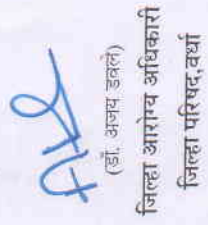 (डॉ. अजय डवले)
जिल्हा आरोग्य अधिकारी
जिल्हा परिषद,वर्धा